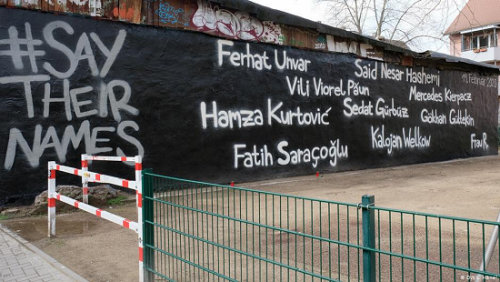 #SAY
THEIR
NAMES
Ferhat Unvar
Said Nesar Hashemi
Vili Viorel Păun
Mercedes Kierpacz
Hamza Kurtović
Sedat Gürbüz
Gökhan Gültekin
Fatih Saraçoğlu
Kalojan Welkow
Frau R